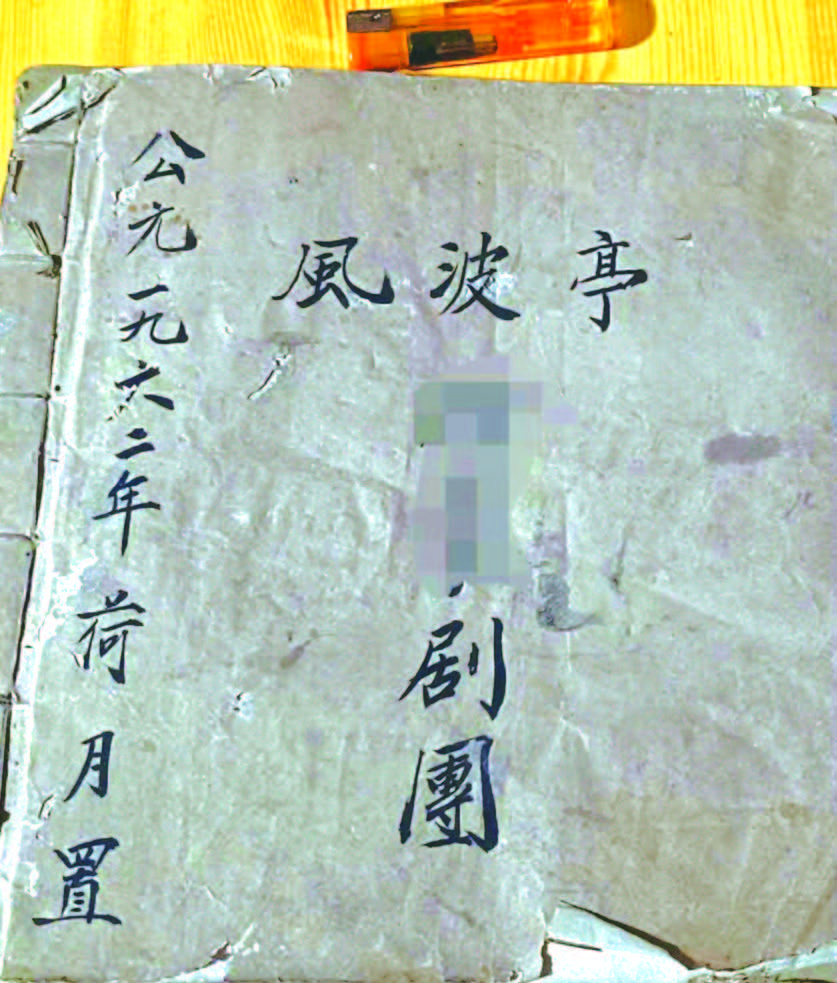 風波亭
剧團
公元一九六二年荷月置